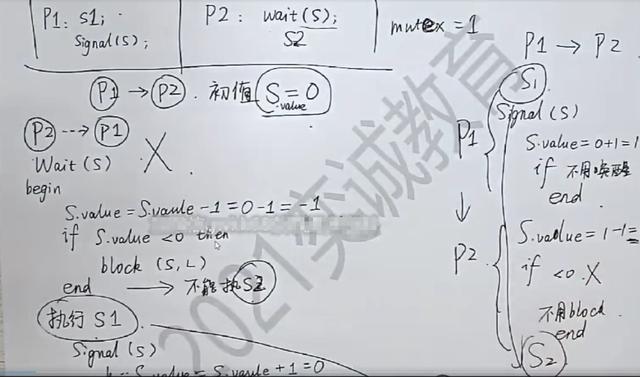 P1: S1;
Signal(S);
P2: wait(S);
S2
mutex = 1
P1 → P2. 初值 S.value = 0
P2 ---> P1
Wait(S) X
begin
S.value = S.vaule - 1 = 0 - 1 = -1
if S.value < 0 then
block (S, L)
end → 不能执S2
执行 S1
Signal(S)
S.value = S.vaule + 1 = 0
P1 → P2
S1
Signal(S)
P1
S.value = 0+1 = 1
if 不用唤醒
end
↓
P2
S.value = 1-1 =
if <0 X
不用block
end
S2
2021奕诚教育